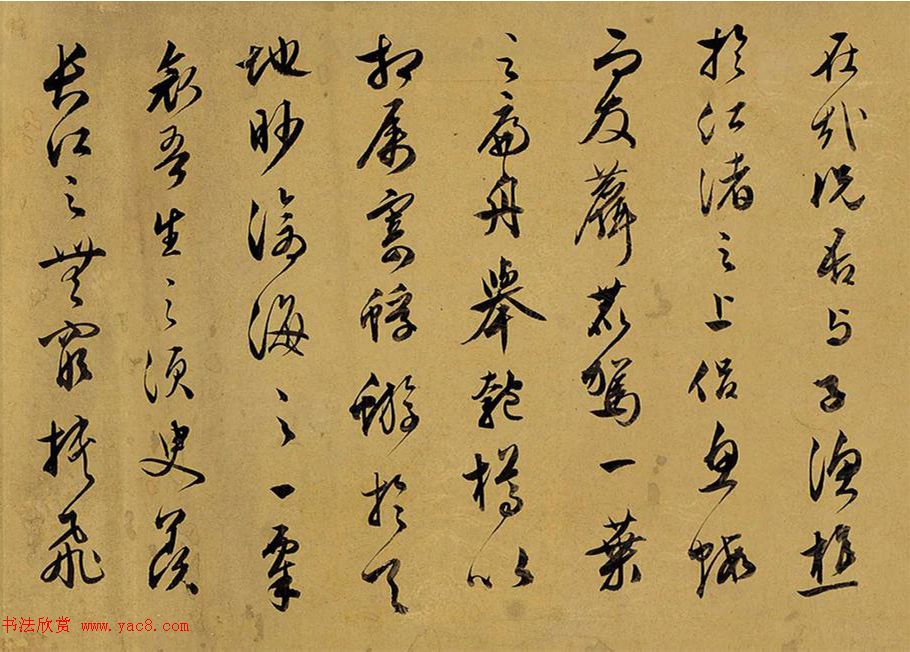 在哉況吾与子漁樵
於江渚之上侣魚蝦
而友麋鹿駕一葉
之扁舟舉匏樽以
相属寄蜉蝣於天
地眇滄海之一粟
哀吾生之須臾羨
長江之無窮挾飛
书法欣赏 www.yac8.com